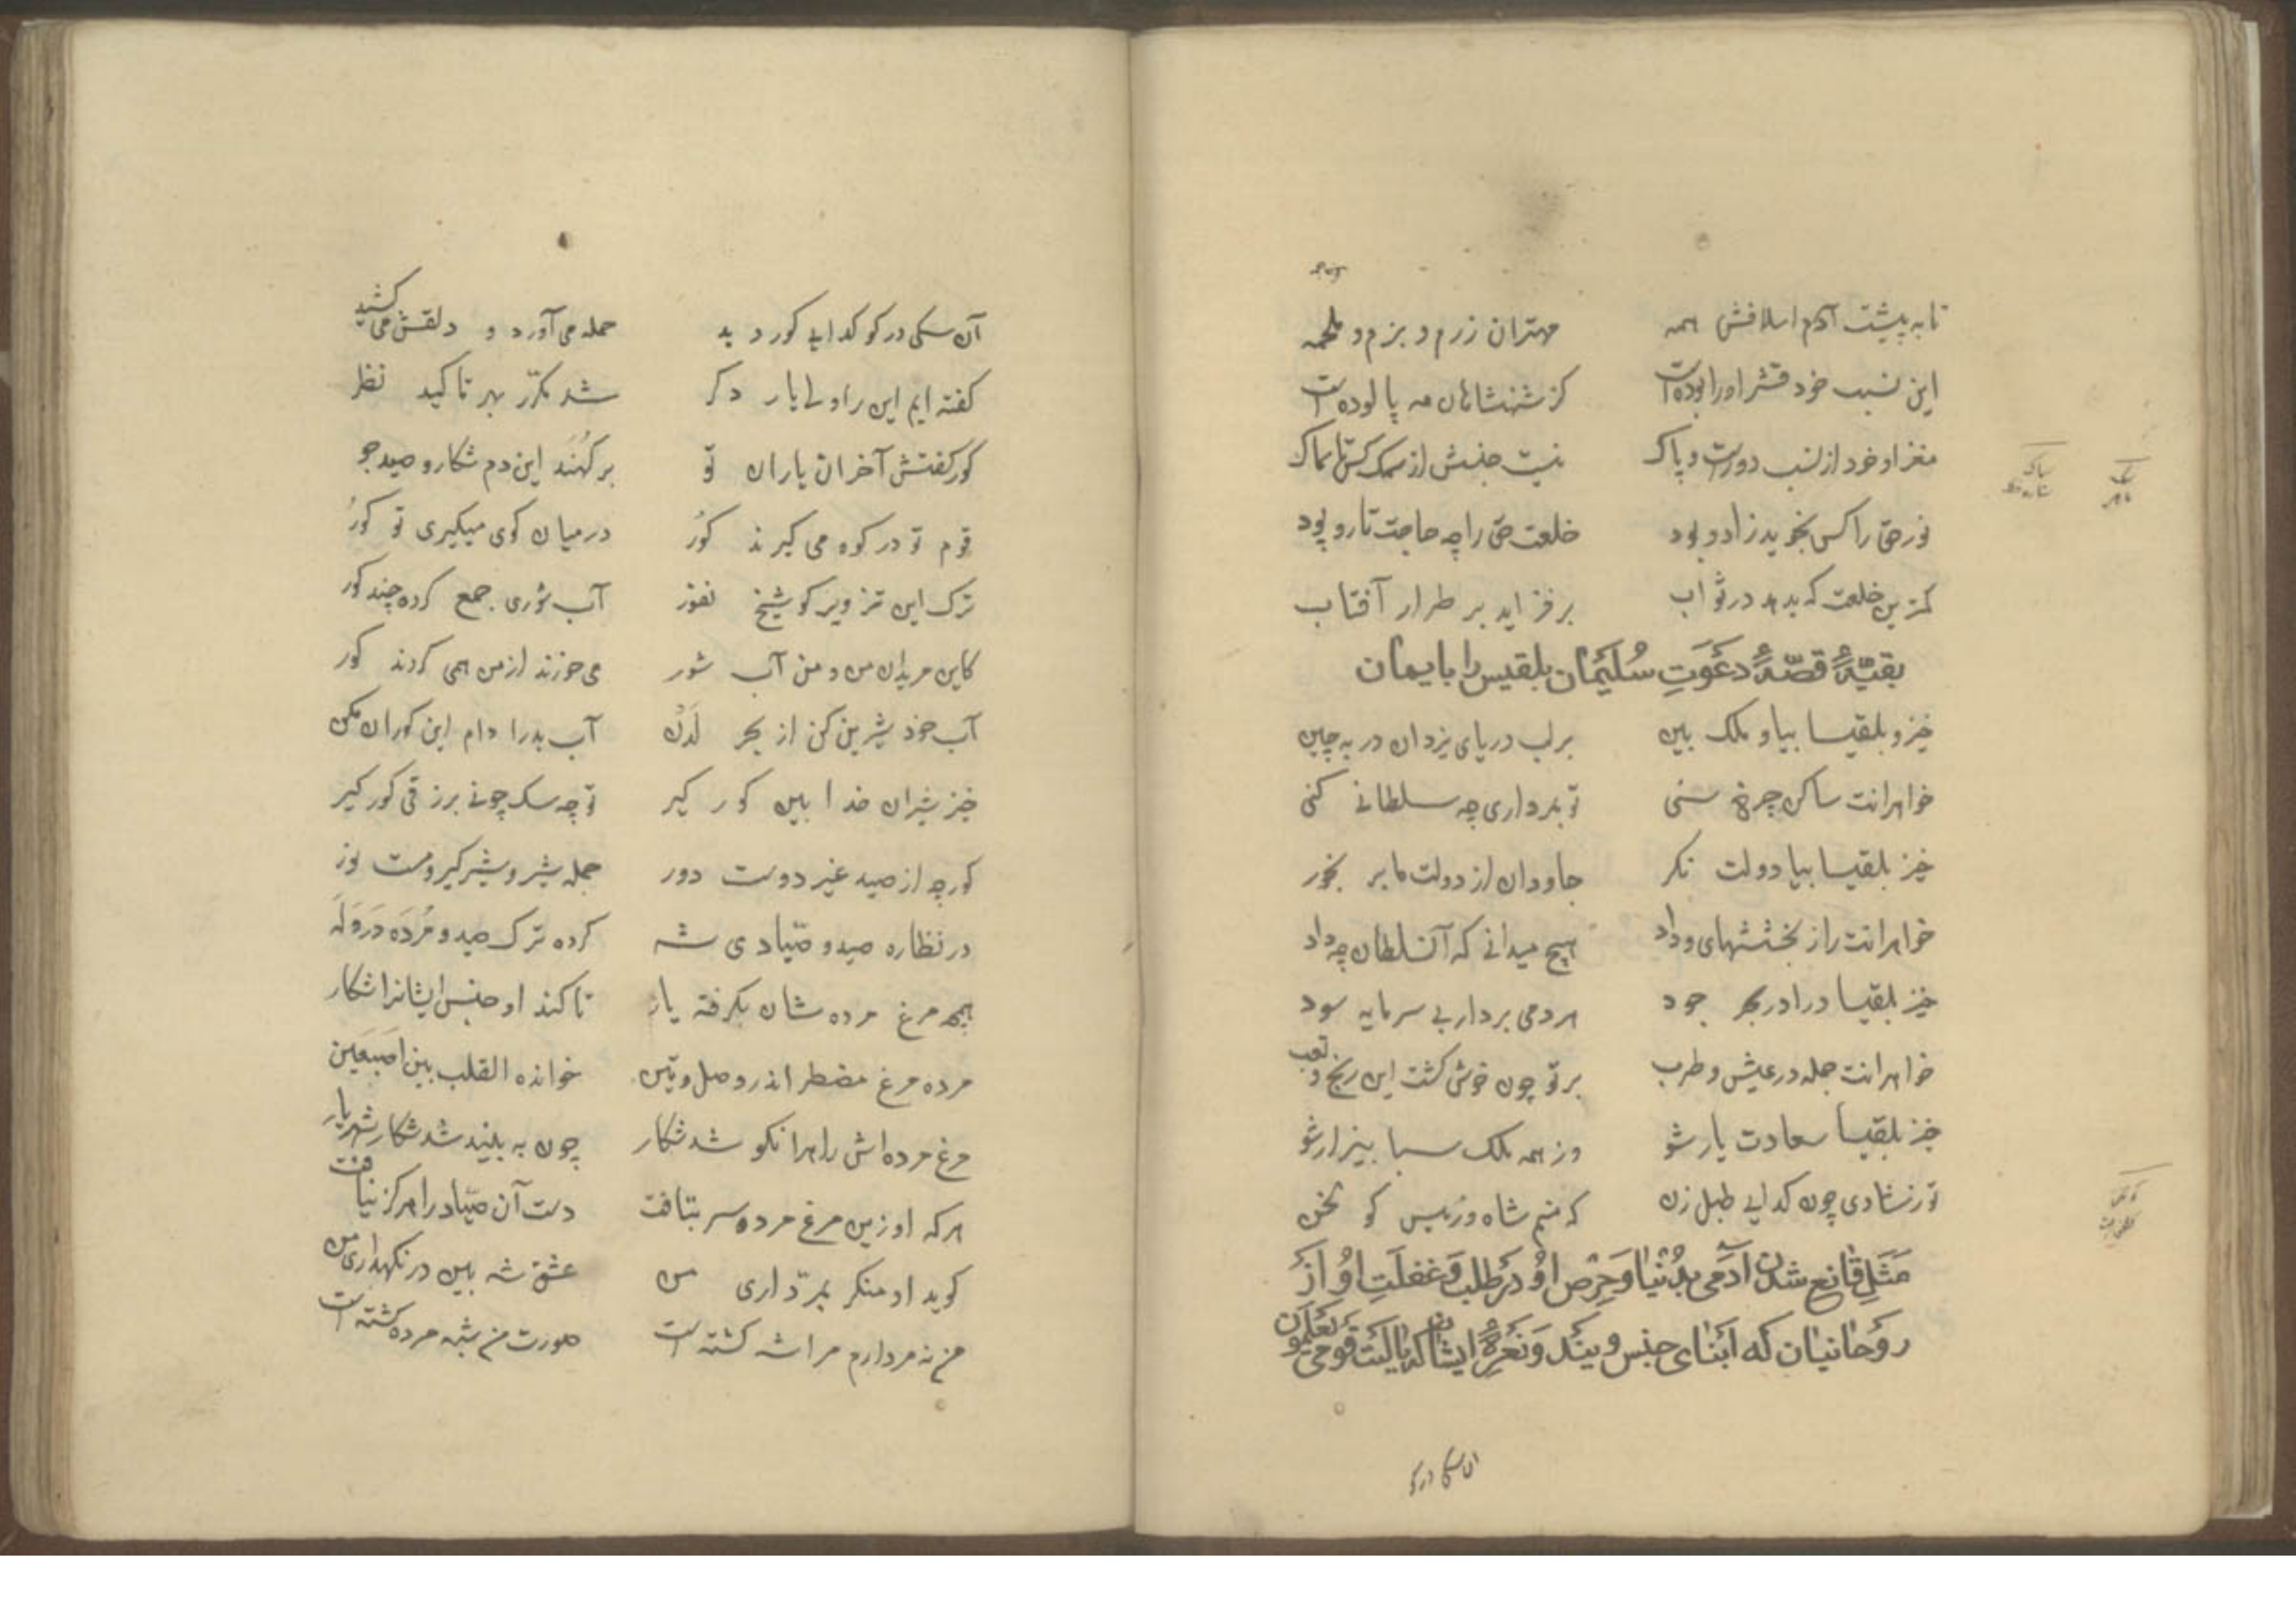 تا به پشت آدم اسلافش همه    مهتران رزم و بزم و ملحمه
این نسب خود قشر اورا بوده است    کز شهنشاهان مه پالوده است
مغز او خود از نسب دورست و پاک    نیست جنسش از سمک کس تا سماک
نور حق را کس نجوید زاد و بود    خلعت حق را چه حاجت تار و پود
کمترین خلعت که بدهد در ثواب    بر فزاید بر طراز آفتاب
بقیّهٔ قصّهٔ دعوَتِ سُلَیمٰان بلقیس را بایمان
خیز و بلقیسا بیا و ملک بین    بر لب دریای یزدان در بچین
خواهرانت ساکن چرخ سنی    تو بمرداری چه سلطانی کنی
خیز بلقیسا بیا دولت نکر    جاودان از دولت ما بر بخور
خواهرانت را ز بخششهای وداد    هیچ میدانی که آن سلطان چه داد
خیز بلقیسا درا در بحر جود    هر دمی بردار بی سرمایه سود
خواهرانت جمله در عیش و طرب    بر تو چون خوش کشت این رنج و تعب
خیز بلقیسا سعادت یار شو    وز همه ملک سبا بیزار شو
تو ز شادی چون کدایی طبل زن    که منم شاه و رئیس کو لخن
مَثَلِ قٰانِع شدن آدمی بدُنیٰا وَ حِرْص اوُ دَر طلب وَ غفلَتِ اوُ اَز
روُحٰانیٰان که اَبنٰای جنس ویند وَ نَعرهٔ ایشان که یٰا لَیتَ قَومی یَعلَموُن
ان سکی در کو
آن سکی در کو کدای کور دید    حمله می آورد و دلقش می کشید
کفته ایم این را ولی بار دکر    شد مکرّر بهر تاکید نظر
کور کفتش آخر ان یاران تو    بر کُهَنَد این دم شکار و صید جو
قوم تو در کوه می کیرند کُور    در میان کوی میکیری تو کورُ
ترک این تزویر کو شیخ نفور    آب شوری جمع کرده چند کور
کاین مریدان من و من آب شور    می خورند از من همی کردند کور
آب خود شیرین کن از بحر لَدُن    آب بد را دام این کوران مکن
خیز شیران خدا بین کور کیر    تو چه سک چونی برزقی کور کیر
کور چه از صید غیر دوست دور    جمله شیر و شیر کیر و مست نور
در نظاره صید و صیّادی شه    کرده ترک صید و مُرده دَر وَلَه
همچو مرغ مرده شان بکرفته یار    تا کند او جنس ایشانرا شکار
مرده مرغ مضطر اندر وصل و بین    خوانده القلب بین اصبَعَین
مرغ مرده اش را هر آنکو شد شکار    چون به بیند شد شکار شهریار
هر که او زین مرغ مرده سر بتافت    دست آن صیّاد را هرکز نیافت
کوید او منکر بمرّداری من    عشق شه بین در نکهداری من
من نه مردارم مرا شه کشته است    صورت من شبه مرده کشته است